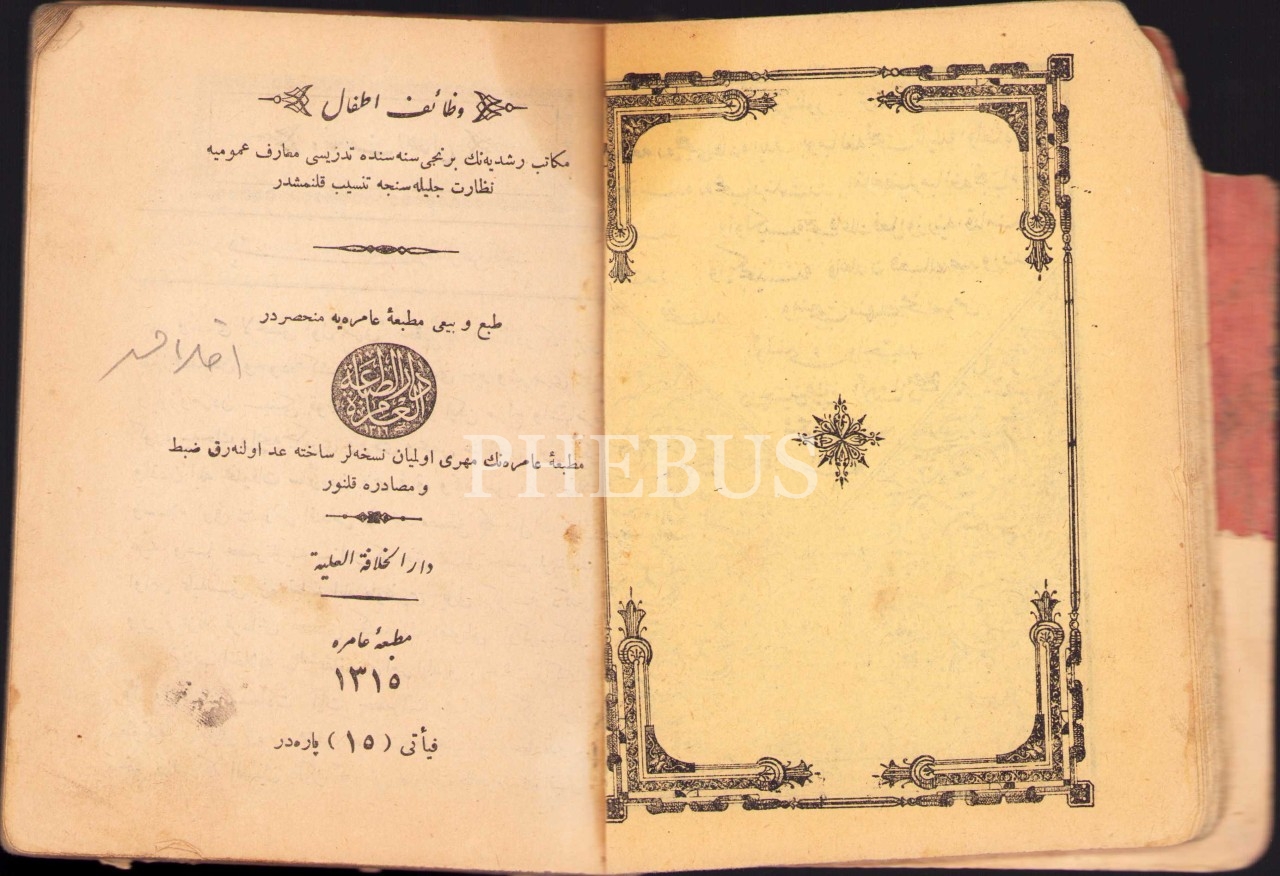 وظائف اطفال
مكاتب رشديه‌نك برنجى سنه‌سنده تدريسى معارف عموميه
نظارت جليله‌سنجه تنسيب قلنمشدر
طبع و بيعى مطبعهٔ عامره‌يه منحصردر
دار الطباعة
العامره
مطبعهٔ عامره‌نك مهرى اولميان نسخه‌لر ساخته عد اولنه‌رق ضبط
و مصادره قلنور
PHEBUS
دار الخلافة العلية
مطبعهٔ عامره
١٣١٥
فيأتى (١٥) پاره‌در